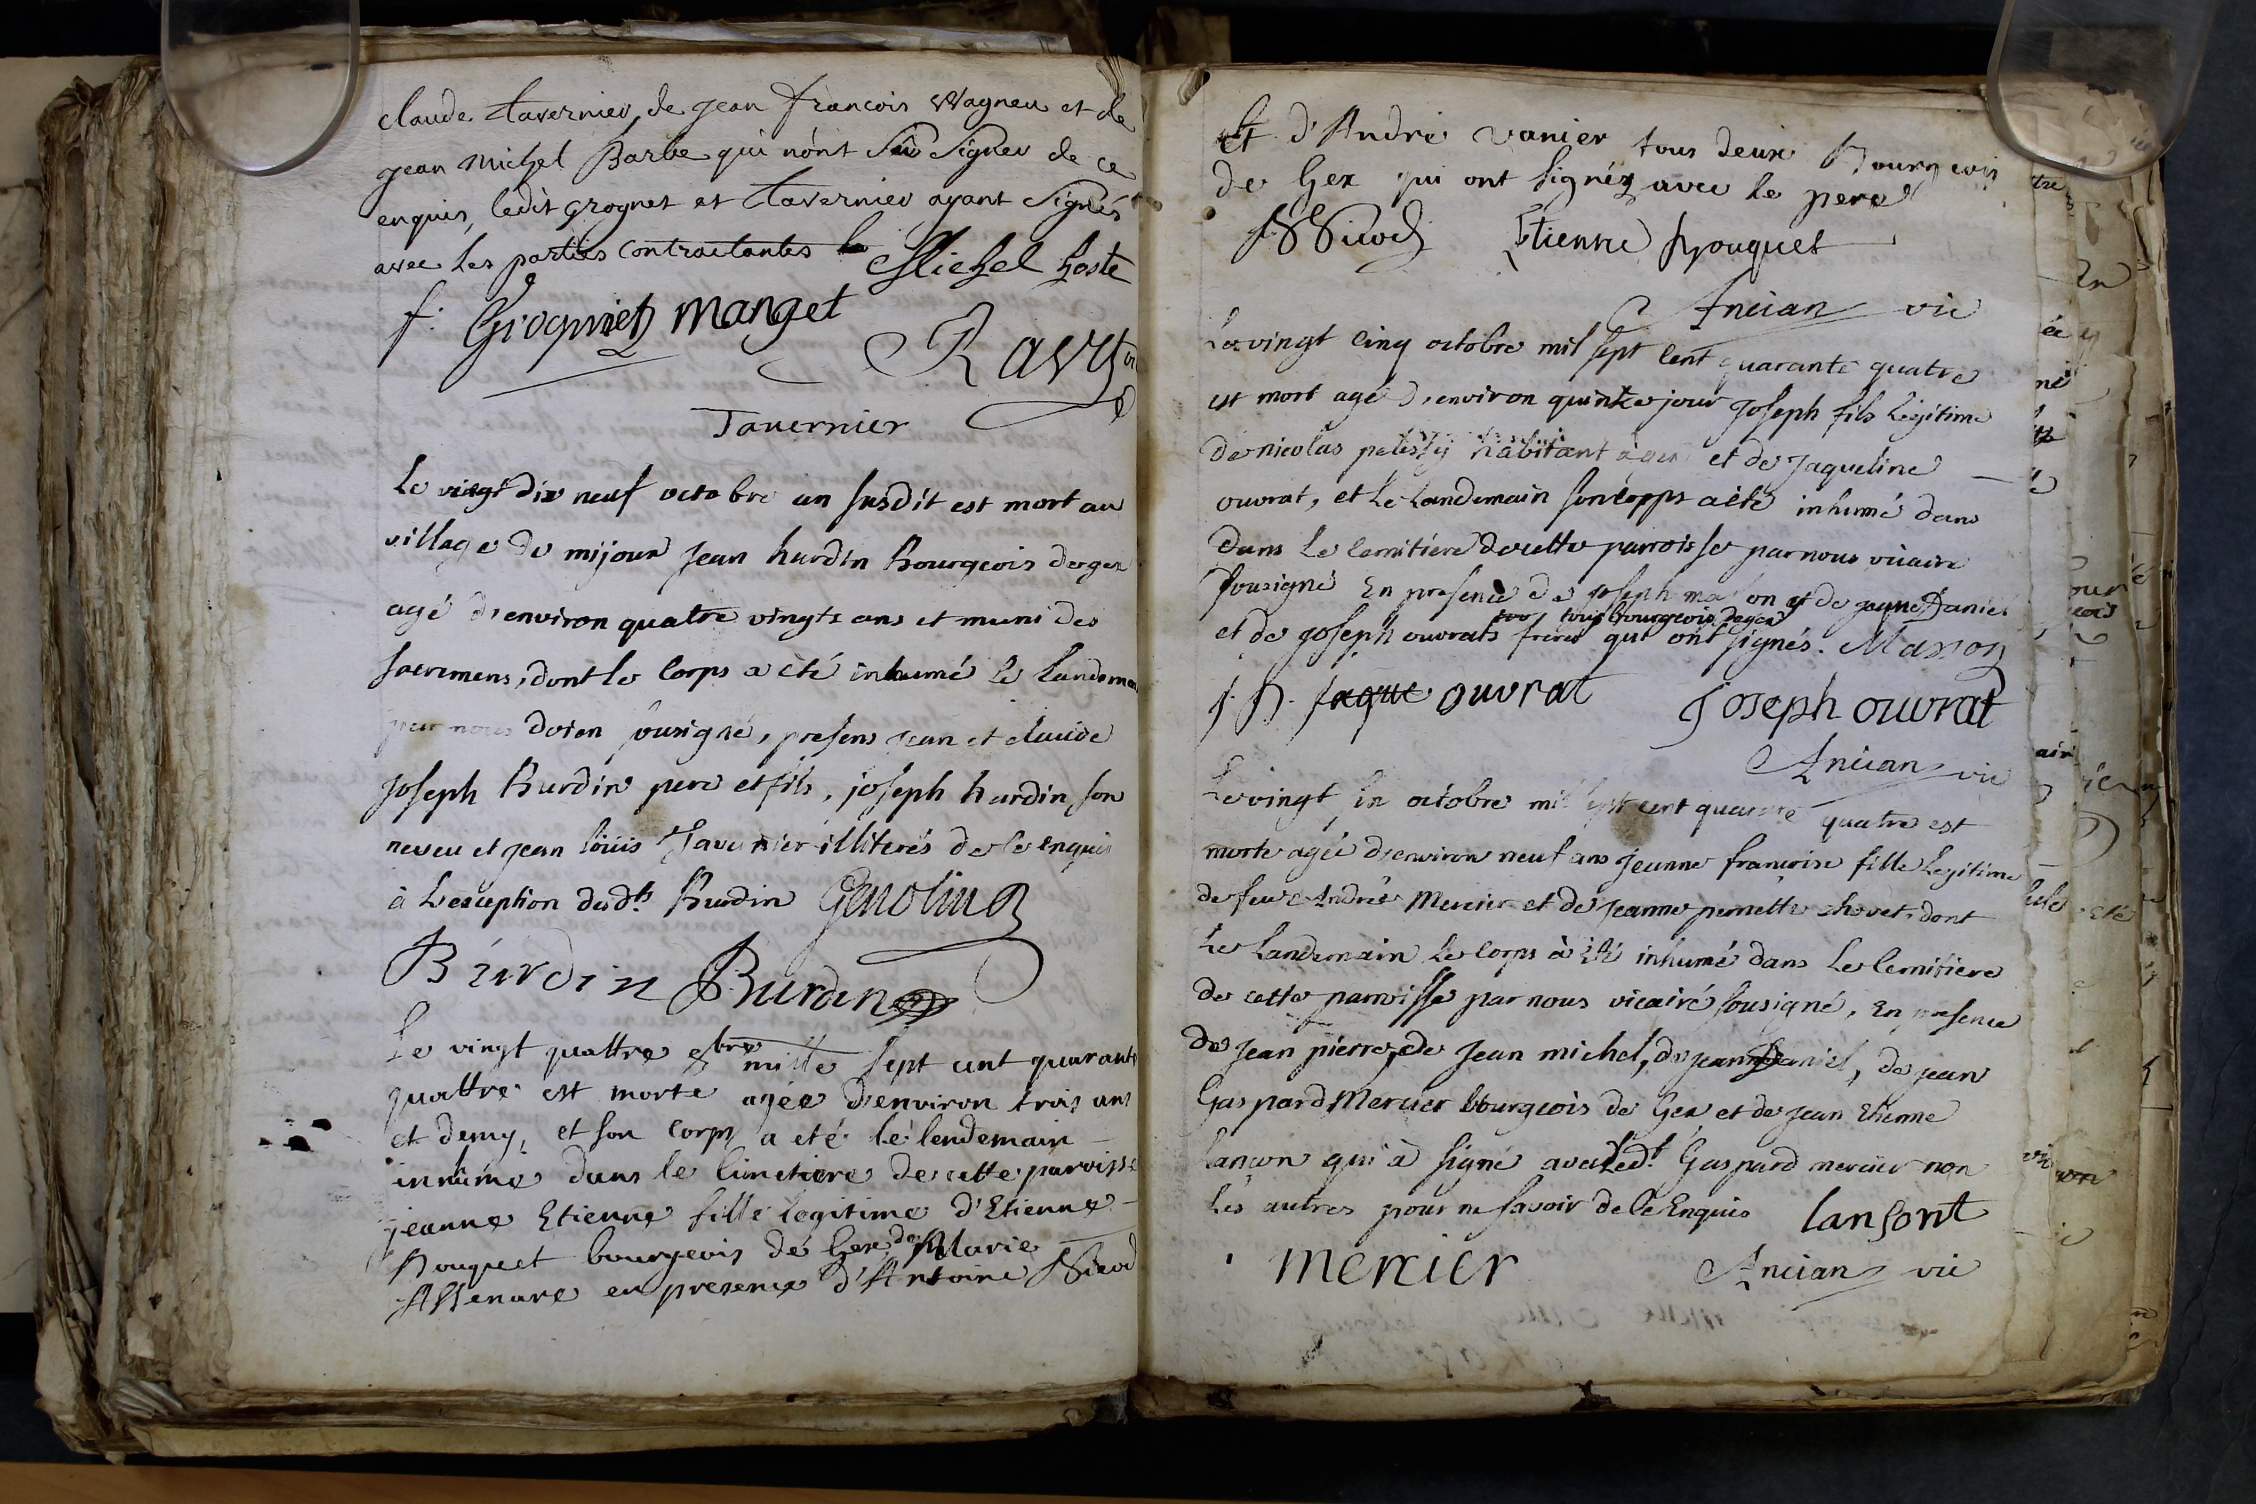 claude tavernier, de jean francois Wagneu et de
jean michel Barbe qui n'ont Sçû Signer de ce
enquis, ledit grognet et tavernier ayant Signés
avec les parties contractantes Michel hoste
f: Grogniet manget
Tavernier
le vingt dix neuf octobre an susdit est mort au
village de mijoux jean burdin Bourgeois de gex
agé d'environ quatre vingts ans et muni des
sacremens, dont le corps a eté inhumé le landemain
par nous doien sousigné, presens jean et claude
joseph Burdin pere et fils, joseph burdin son
neveu et jean loüis Tavernier illiterés de ce enquis
à l'exception desdts Burdin Genolin
Burdin Burdin
Le vingt quattre 8bre mille sept cent quarante
quattre est morte agée d'environ trois ans
et demy, et son corps a eté le lendemain
inhumé dans le cimetiere de cette paroisse
jeanne Etienne fille legitime d'Etienne
Bouquet bourgeois de Gex de Marie
en presence d'Antoine Nicod
Et d'André vanier tous deux Bourgeois
de Gex qui ont signéz avec le pere
Nicod Etienne Bouquet
Ancian vic
Le vingt cinq octobre mil sept cent quarante quatre
est mort agé d'environ quinze jour joseph fils legitime
de nicolas pelissy habitant à gex et de jaqueline
ouvrat, et le landemain son corps a eté inhumé dans
dans le cemitiere de cette parroisse par nous vicaire
sousigné En presence de joseph masson et de jaque Daniel
tous bourgeois de gex
et de joseph ouvrats freres qui ont signés. Masson
j. D. jaque ouvrat joseph ouvrat
Ancian vic
Le vingt six octobre mil sept cent quarante quatre est
morte agée d'environ neuf ans jeanne francoise fille legitime
de feu André Mercier et de jeanne pernette chovet, dont
le landemain le corps à été inhumé dans le cemitiere
de cette parroisse par nous vicaire sousigné, En presence
de jean pierre, de jean michel, de jean Daniel, de jean
Gaspard Mercier bourgeois de Gex et de jean Etienne
lancon qui à signé avec ledt. Gaspard mercier non
les autres pour ne savoir de ce Enquis lansont
mercier Ancian vic